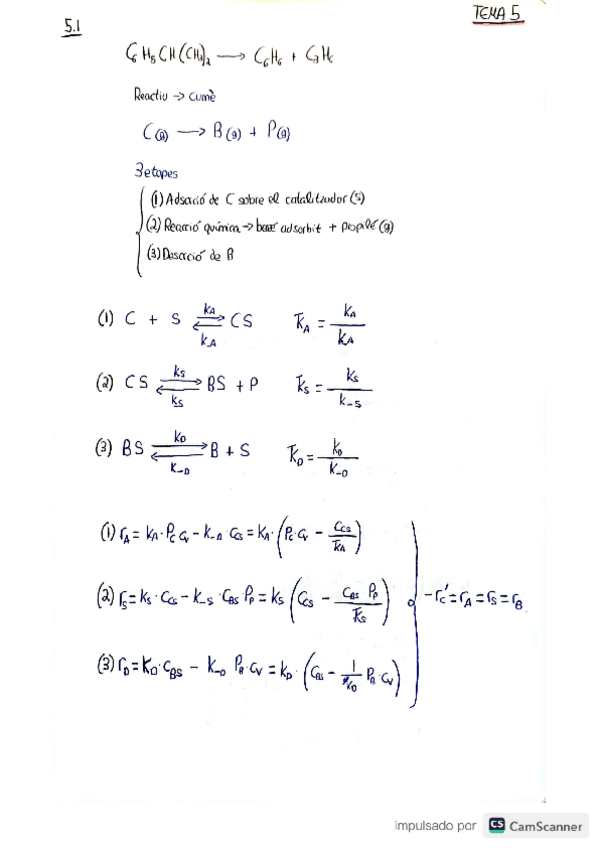 TEMA 5
5.1
C₆H₅CH(CH₃)₂ → C₆H₆ + C₃H₆
Reactiu → cumè
C(g) → B(g) + P(g)
3 etapes
(1) Adsació de C sobre el catalitzador (S)
(2) Reacció química → adsorbit + (g)
(3) Desorció de B
(1) C + S ⇌ CS kA kA K_A = kA / kA
(2) CS ⇌ BS + P ks ks K_s = ks / k-s
(3) BS ⇌ B + S kD k-D K_D = kD / k-D
(1) rA = kA · Pc Cv − k-A · Ccs = kA · (Pc · Cv − Ccs / KA)
(2) rs = ks · Ccs − k-s · CBS PP = ks (Ccs − CBS PP / Ks) −rc' = rA = rs = rB
(3) rD = kD · CBS − k-D PB · Cv = kD · (CBS − 1 / KD PB · Cv)
impulsado por CS CamScanner